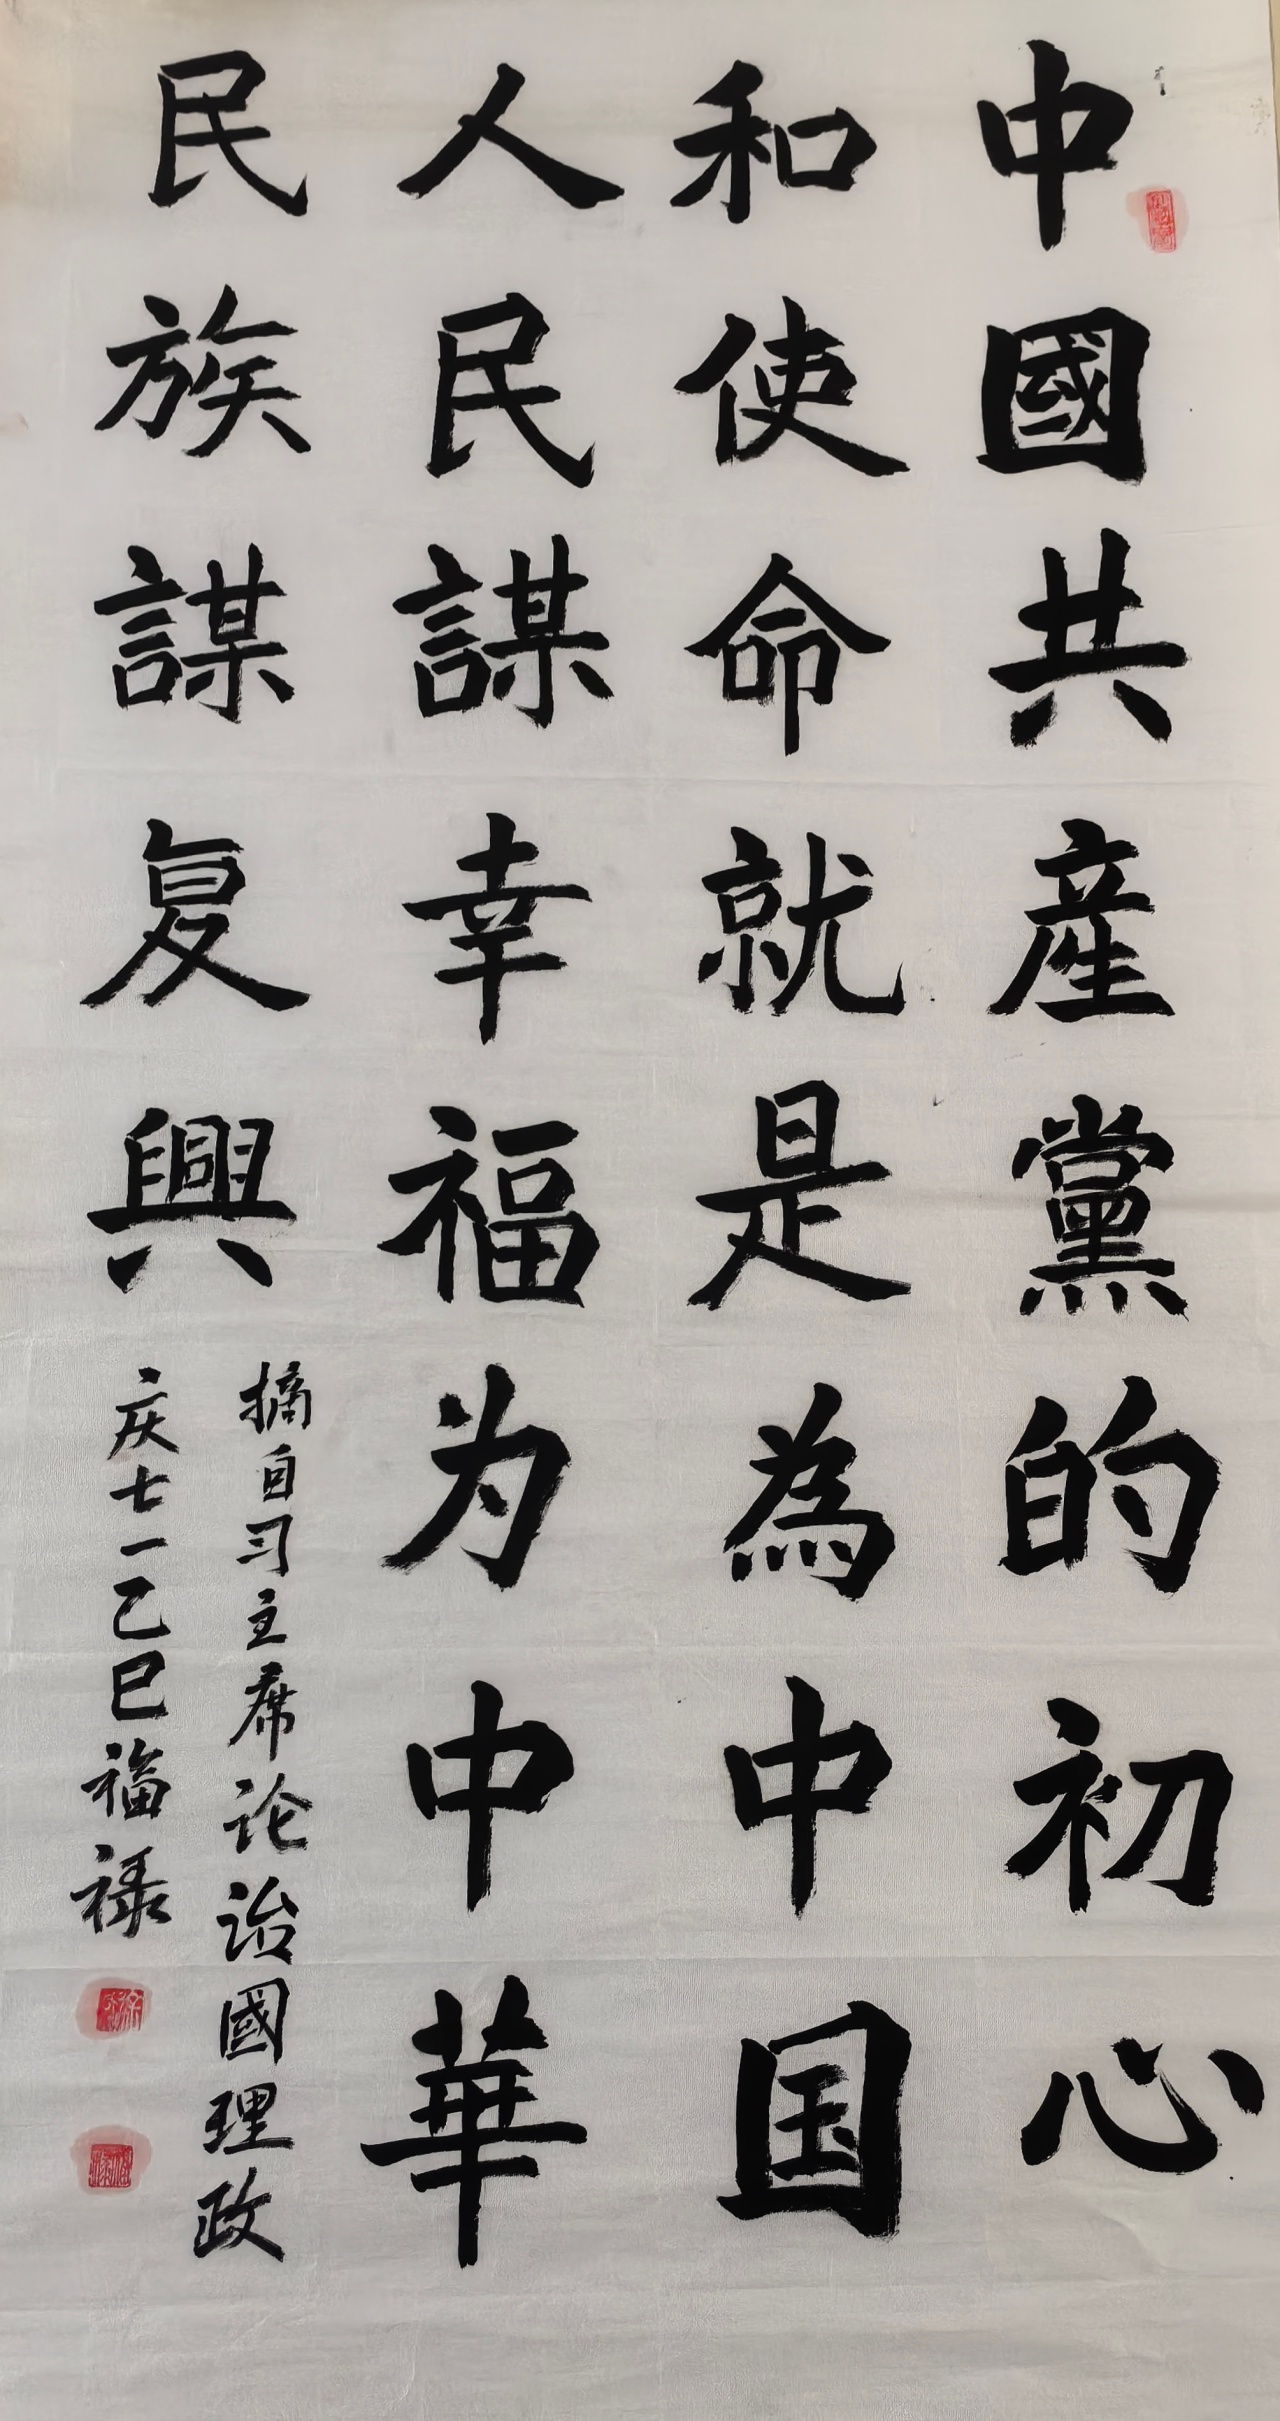 中國共產黨的初心
和使命就是為中国
人民謀幸福为中華
民族謀复興
摘自习主席论治國理政
庆七一乙巳福禄